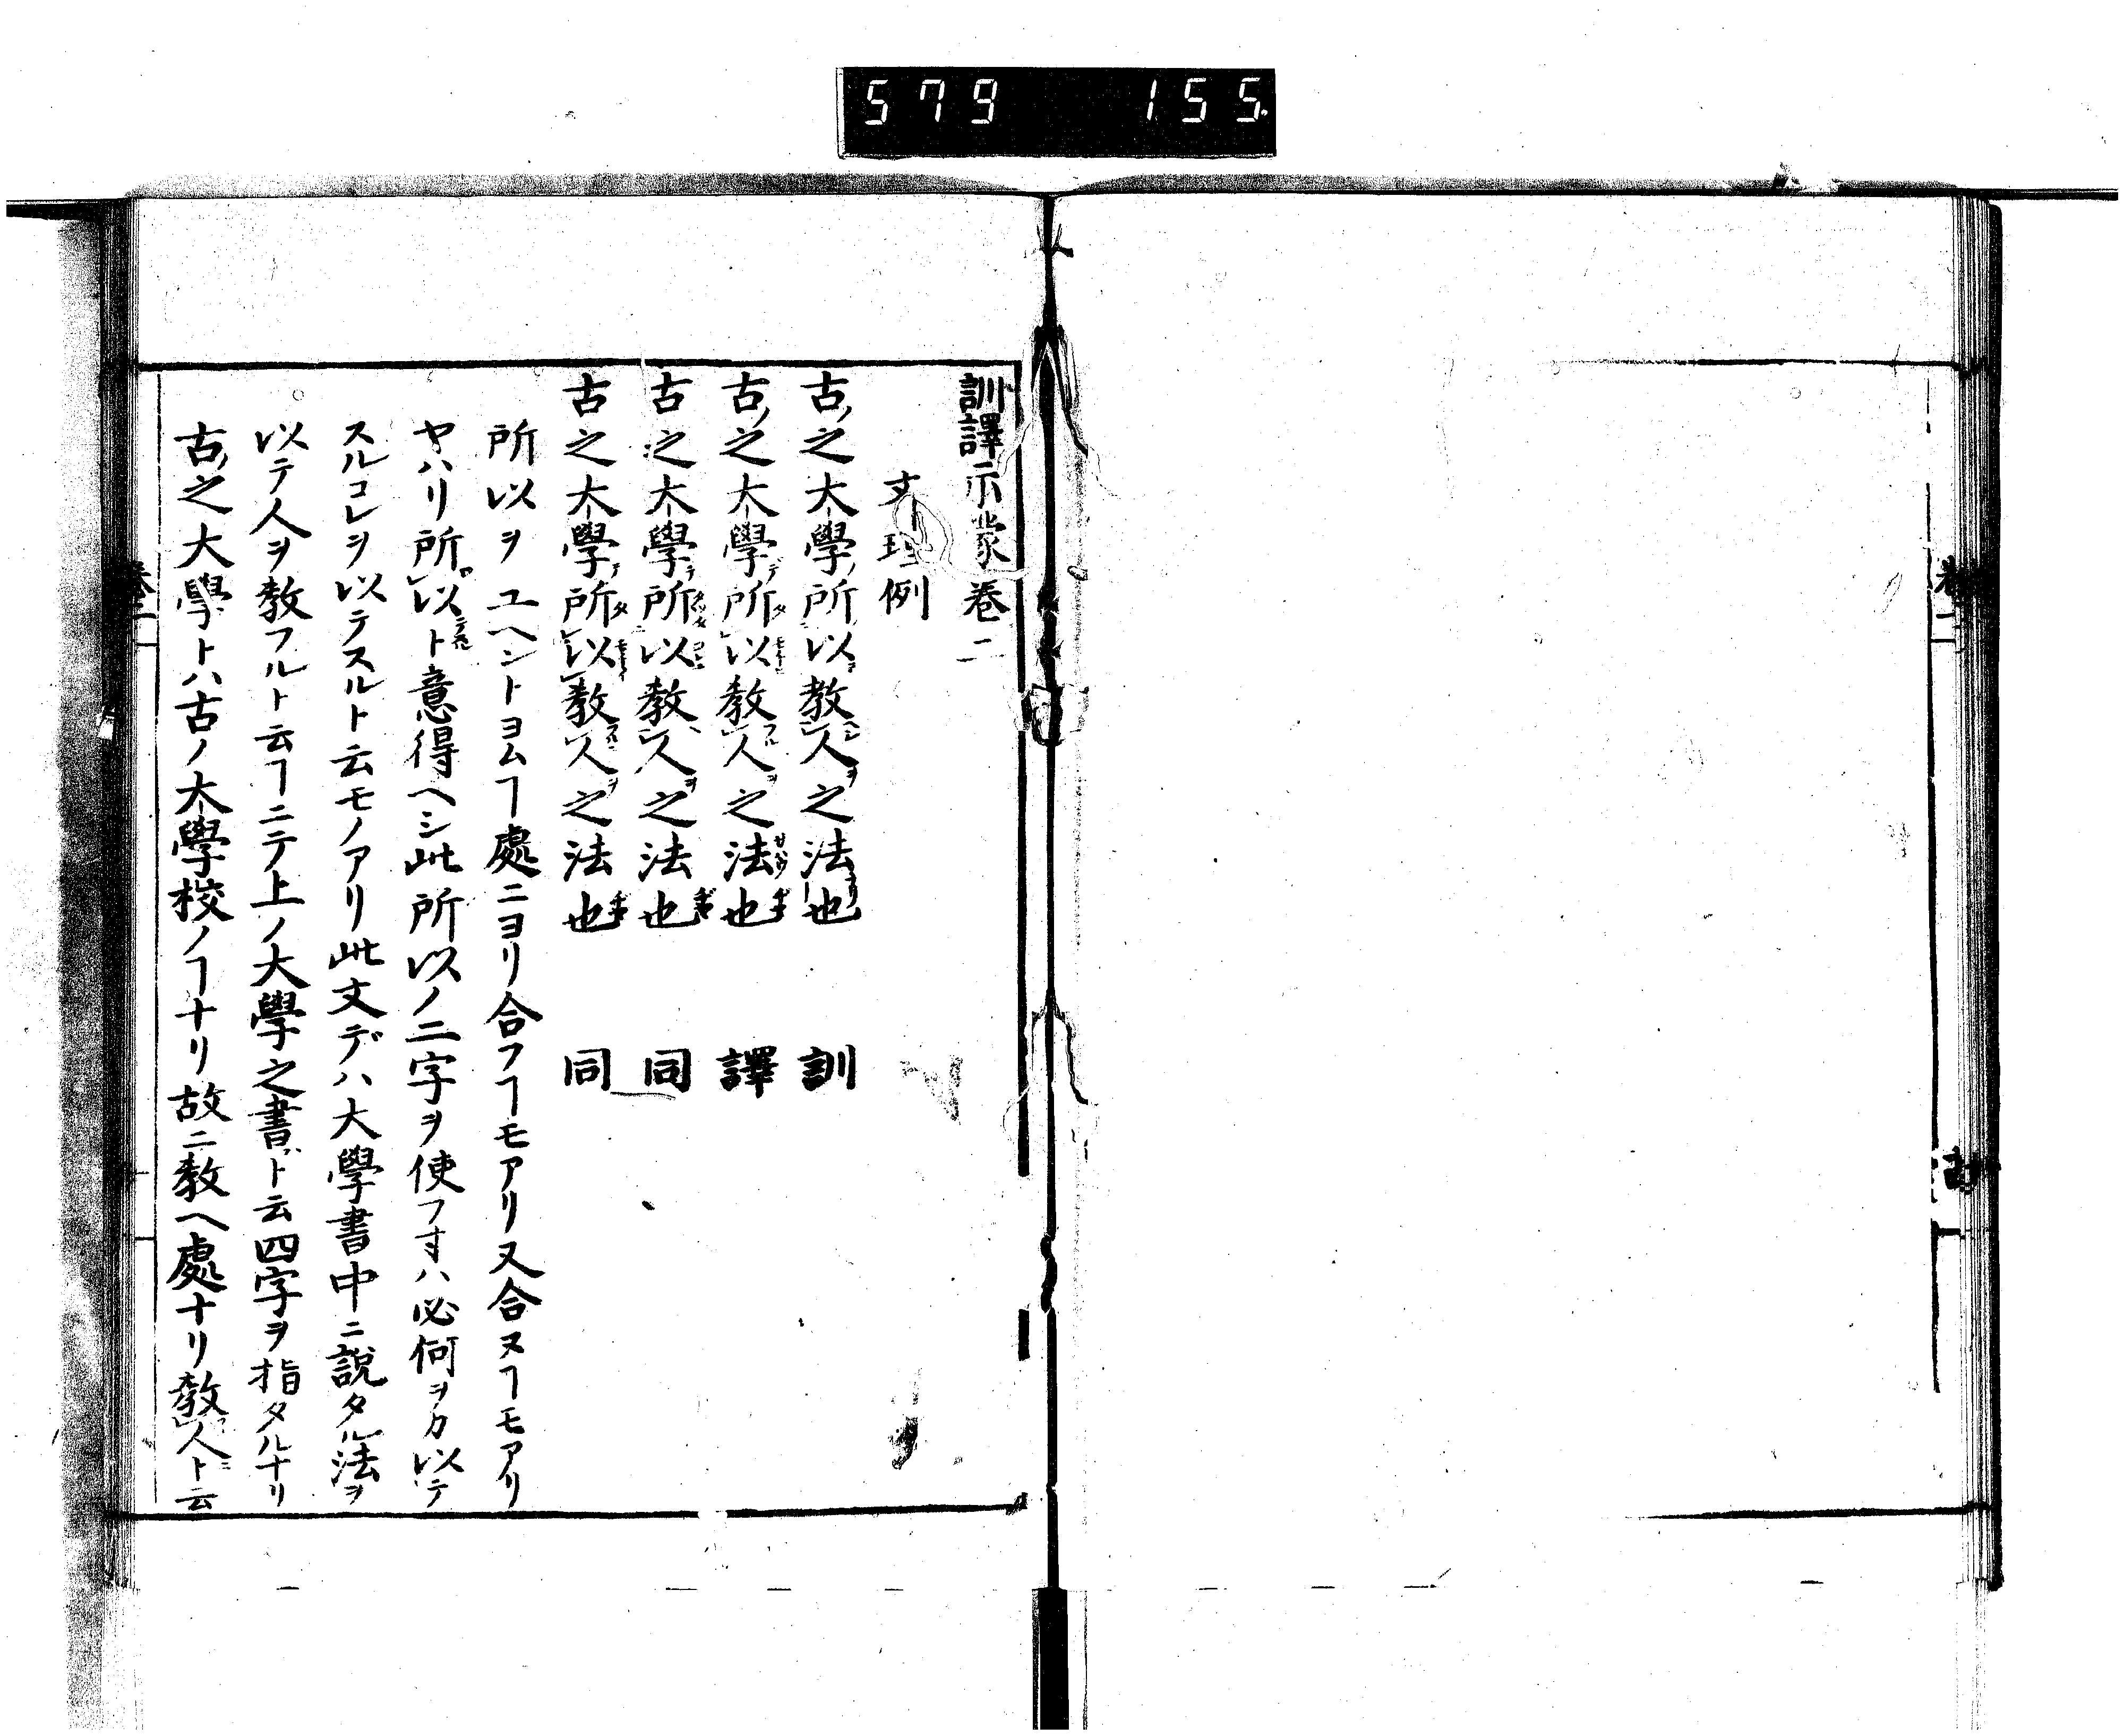 579 155
訓譯示蒙卷二
文理例
古ノ之大學ノ所以教人ヲ之法也 訓
古ノ之大學デ所以教人ヲ之法也 譯
古之大學デ所以教人ヲ之法也 同
古之大學デ所以教人ヲ之法也 同
所以ヲユヘントヨムヿ處ニヨリ合フヿモアリ又合ヌヿモアリ
ヤハリ所以ト意得ヘシ此所以ノ二字ヲ使フ寸ハ必何ヲカ以テ
スルコレヲ以テスルト云モノアリ此文デハ大學書中ニ說タル法ヲ
以テ人ヲ教フルト云ヿニテ上ノ大學之書ト云四字ヲ指タルナリ
古ノ之大學トハ古ノ大學校ノヿナリ故ニ教ヘ處ナリ教人ト云